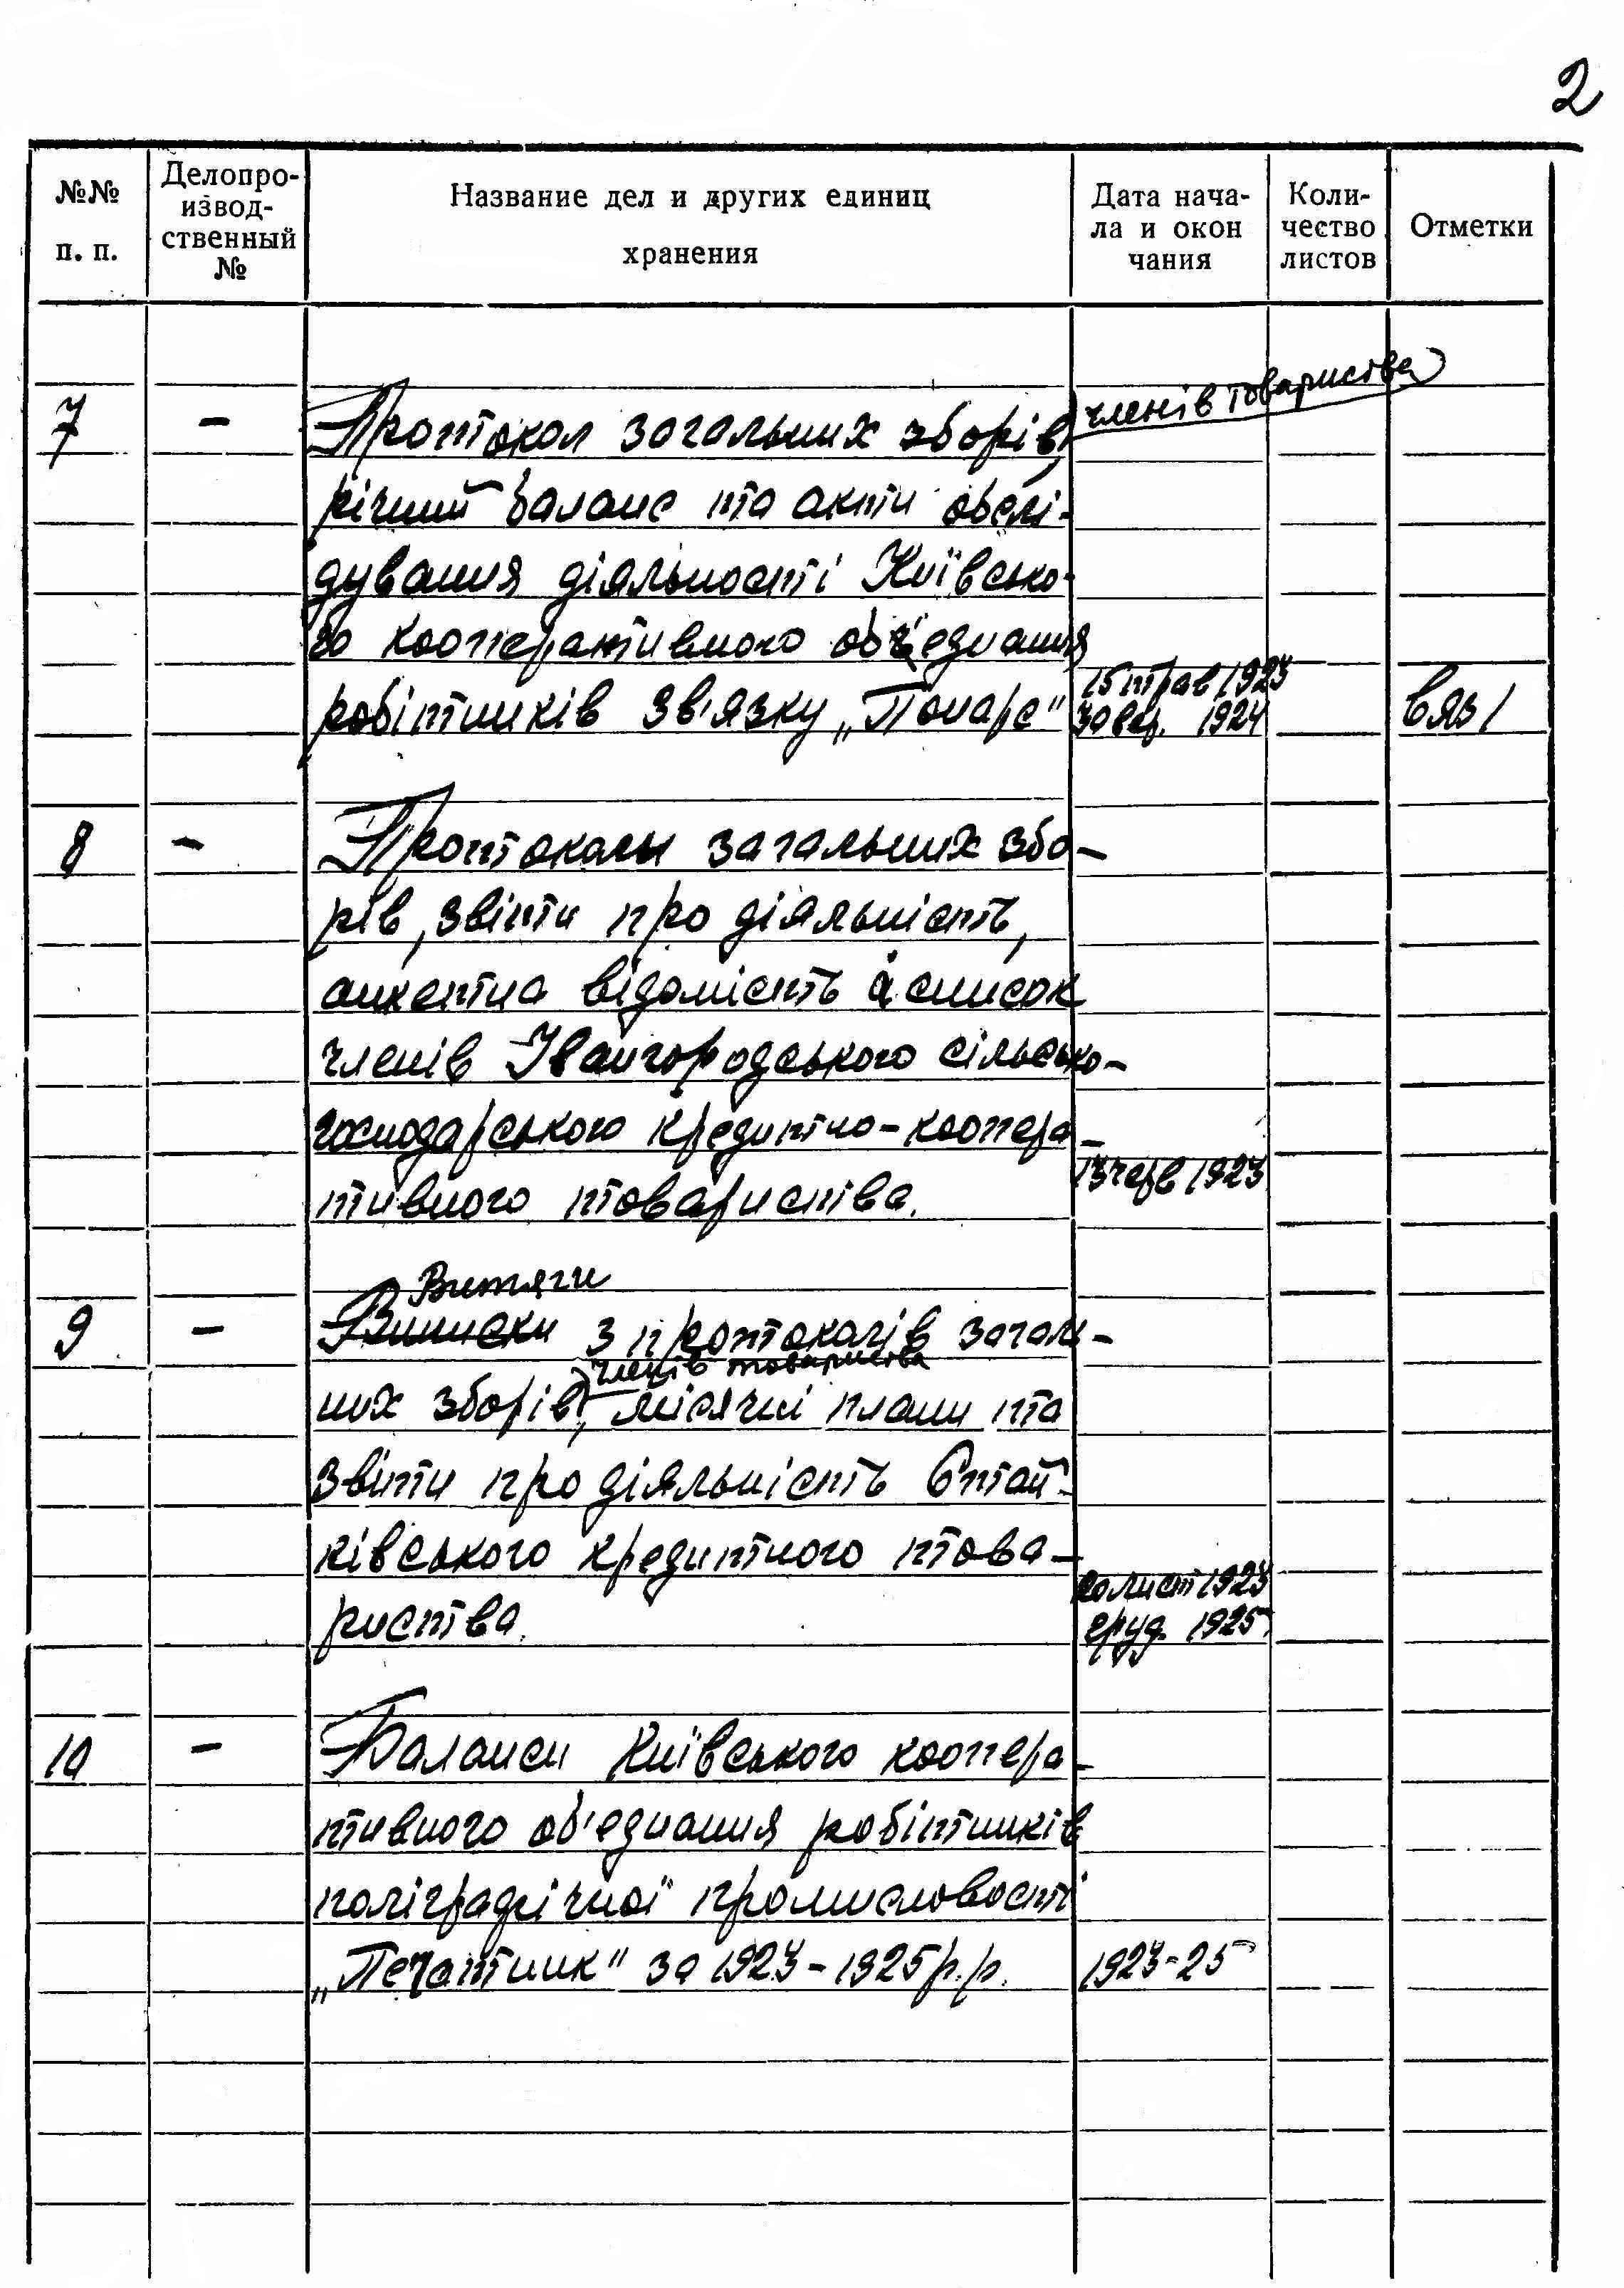 2
№№ п. п.
Делопро-
извод-
ственный
№
Название дел и других единиц
хранения
Дата нача-
ла и окон
чания
Коли-
чество
листов
Отметки
членів товариства
7 - Протокол загальних зборів,
річний баланс та акти обслі-
дування діяльності Київсько-
го кооперативного об'єднання
робітників зв'язку „Понарс" 15 трав 1923
30 вер. 1924 вяз 1
8 - Протоколы загальних збо-
рів, звіти про діяльність,
анкетна відомість і список
членів Івангородського сільсько-
господарського кредитно-коопера-
тивного товариства. 13 черв 1923
Витяги
9 - Виписки з протоколів загаль-
членів товариства
них зборів, місячні плани та
звіти про діяльність Стай-
ківського кредитного това-
риства. лист 1923
груд. 1925
10 - Баланси Київського коопера-
тивного об'єднання робітників
поліграфічної промисловості
„Печатник" за 1923-1925 р.р. 1923-25